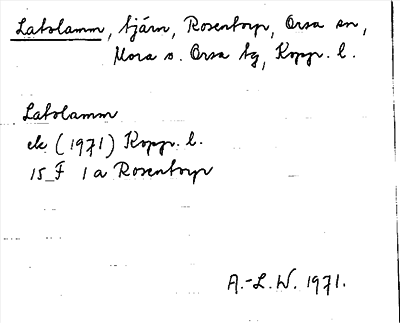 Latolamm, tjärn, Rosentorp, Orsa sn,
Mora o. Orsa tg, Kopp. l.
Latolamm
ek (1971) Kopp. l.
15 F 1a Rosentorp
A.-L. W. 1971.